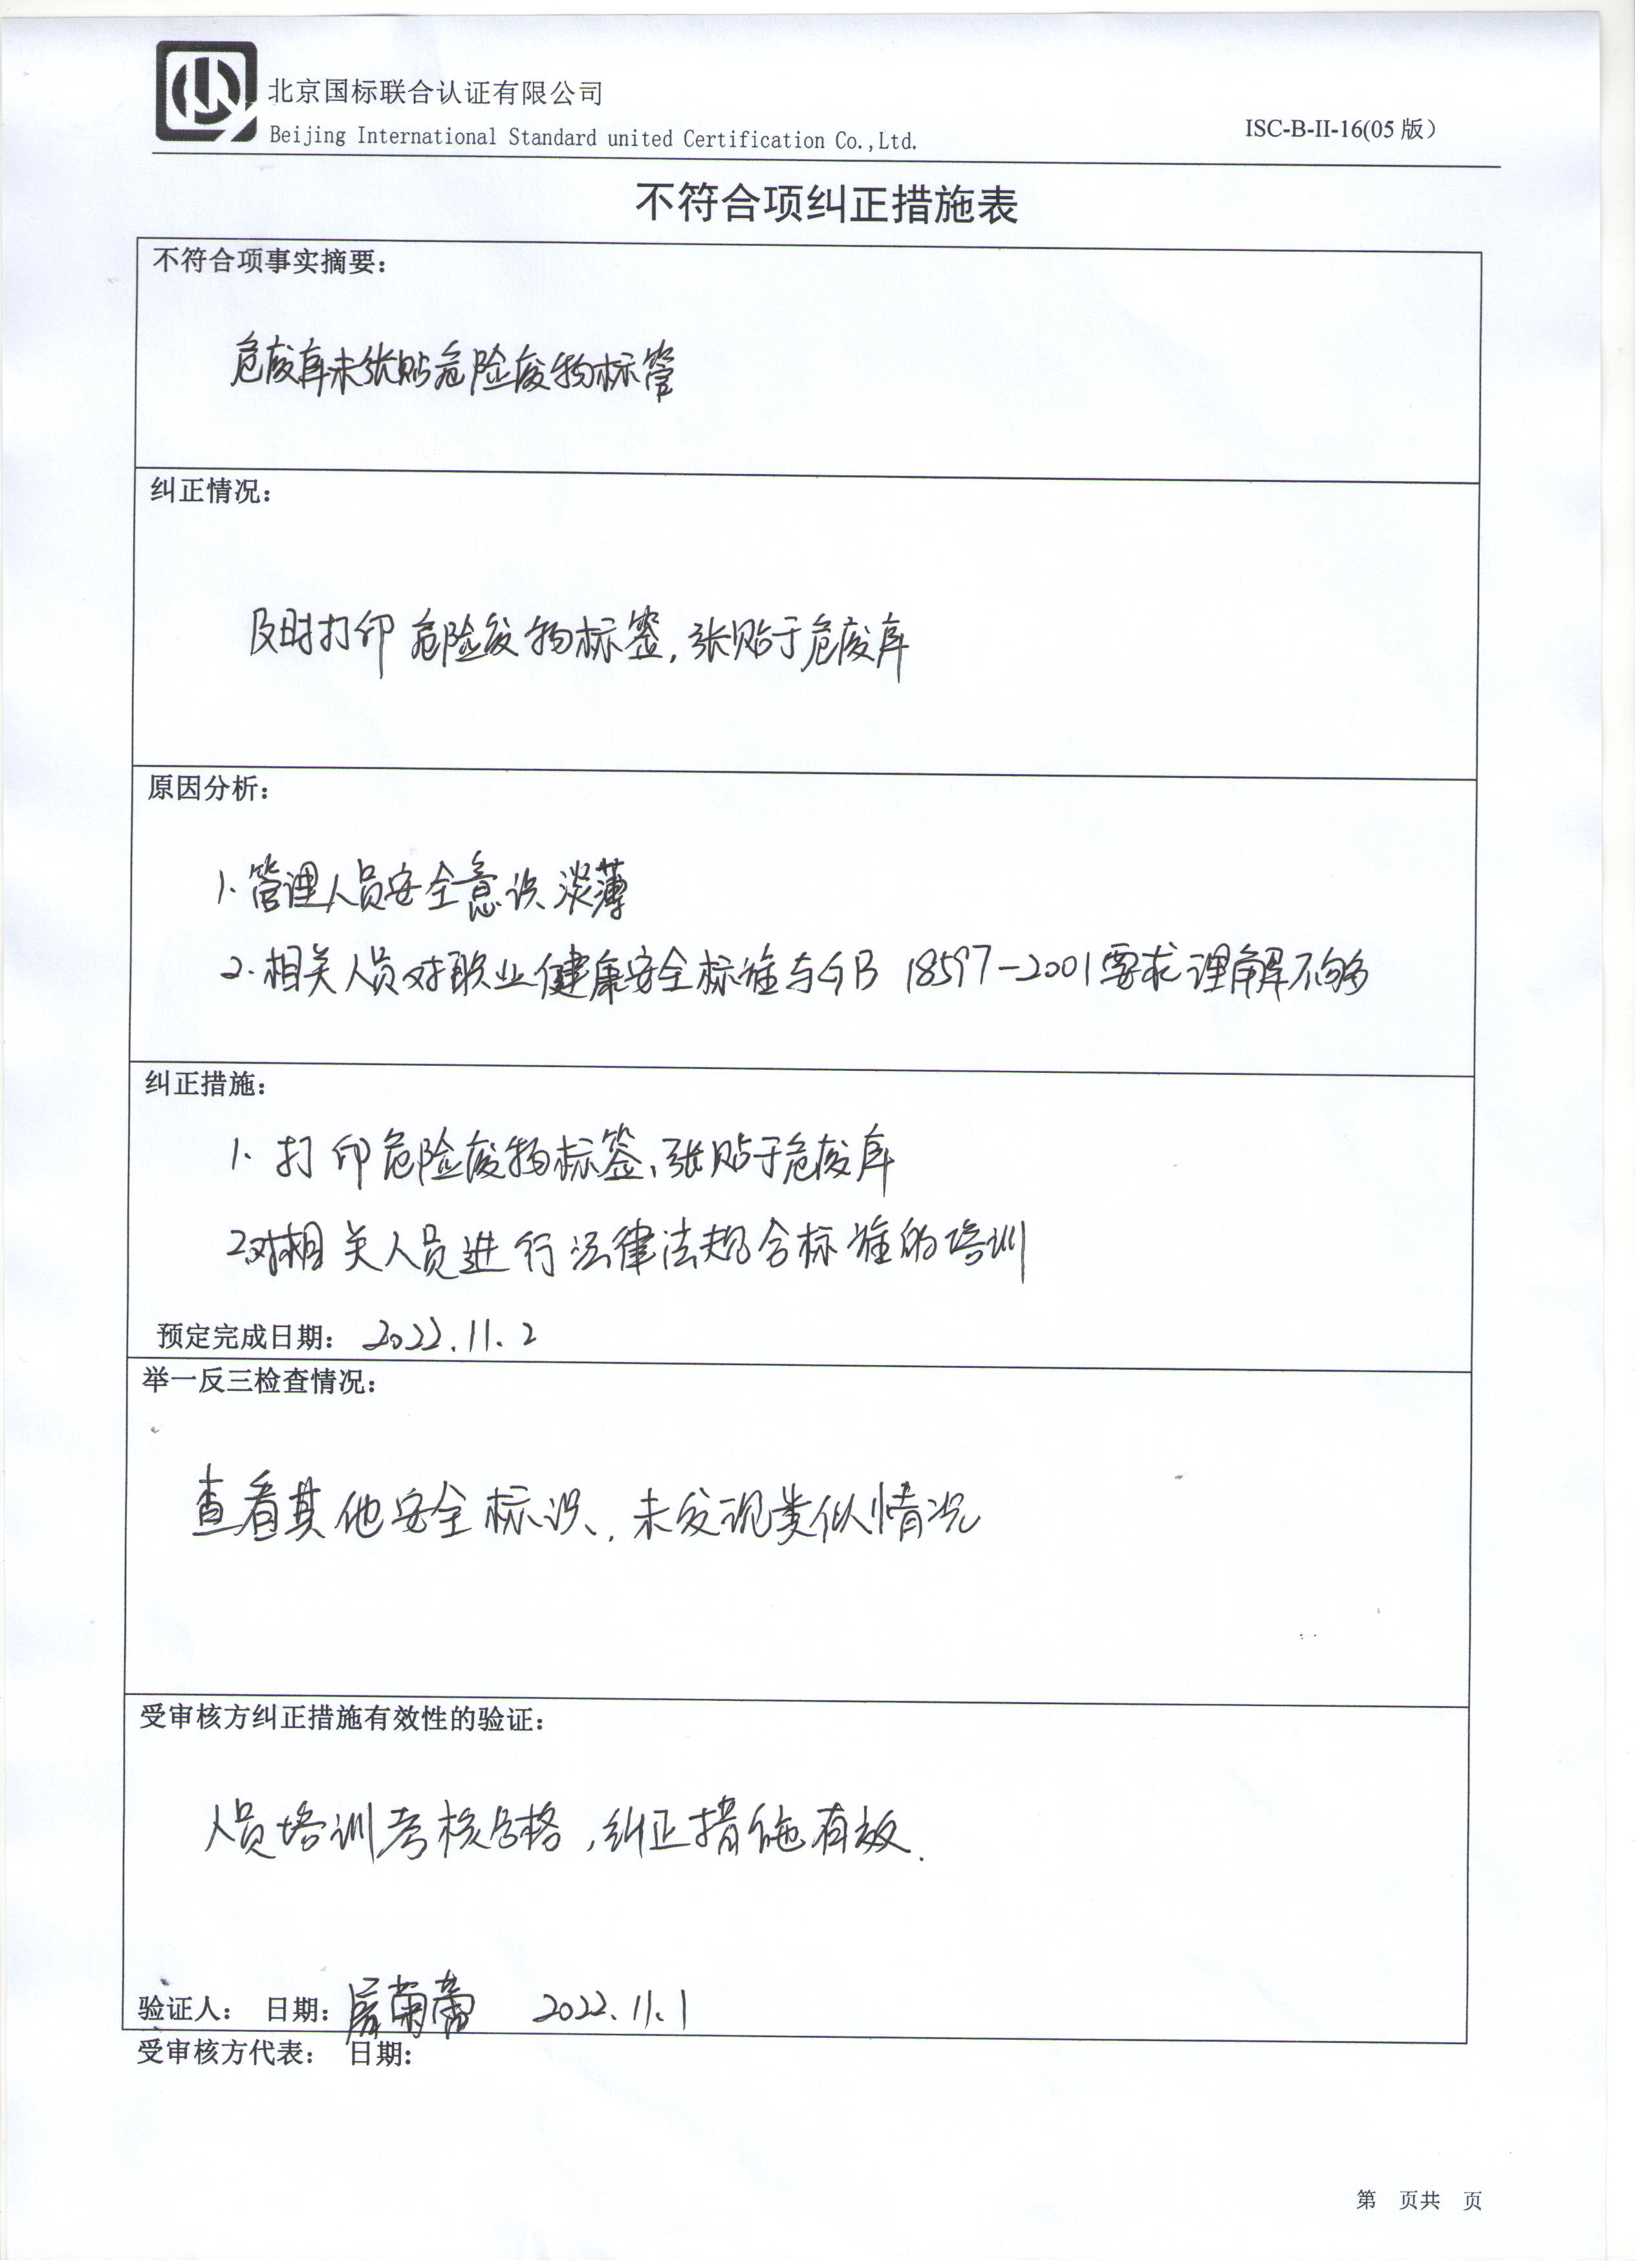 北京国标联合认证有限公司
Beijing International Standard united Certification Co.,Ltd.
ISC-B-II-16(05 版)
不符合项纠正措施表
不符合项事实摘要:
危废库未张贴危险废物标签
纠正情况:
及时打印危险废物标签,张贴于危废库
原因分析:
1.管理人员安全意识淡薄
2.相关人员对职业健康安全标准与GB 18597-2001要求理解不够
纠正措施:
1.打印危险废物标签、张贴于危废库
2对相关人员进行法律法规合标准的培训
预定完成日期: 2022.11.2
举一反三检查情况:
查看其他安全标识,未发现类似情况
受审核方纠正措施有效性的验证:
人员培训考核合格,纠正措施有效.
验证人: 日期: 2022.11.1
受审核方代表: 日期:
第 页共 页